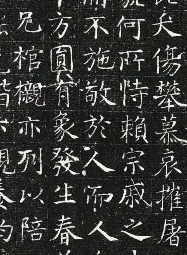 矣傷攀慕哀摧屠
何所恃賴宗戚之
而不施敬於人而人
方圓有象發生春
兄棺櫬亦列以陪